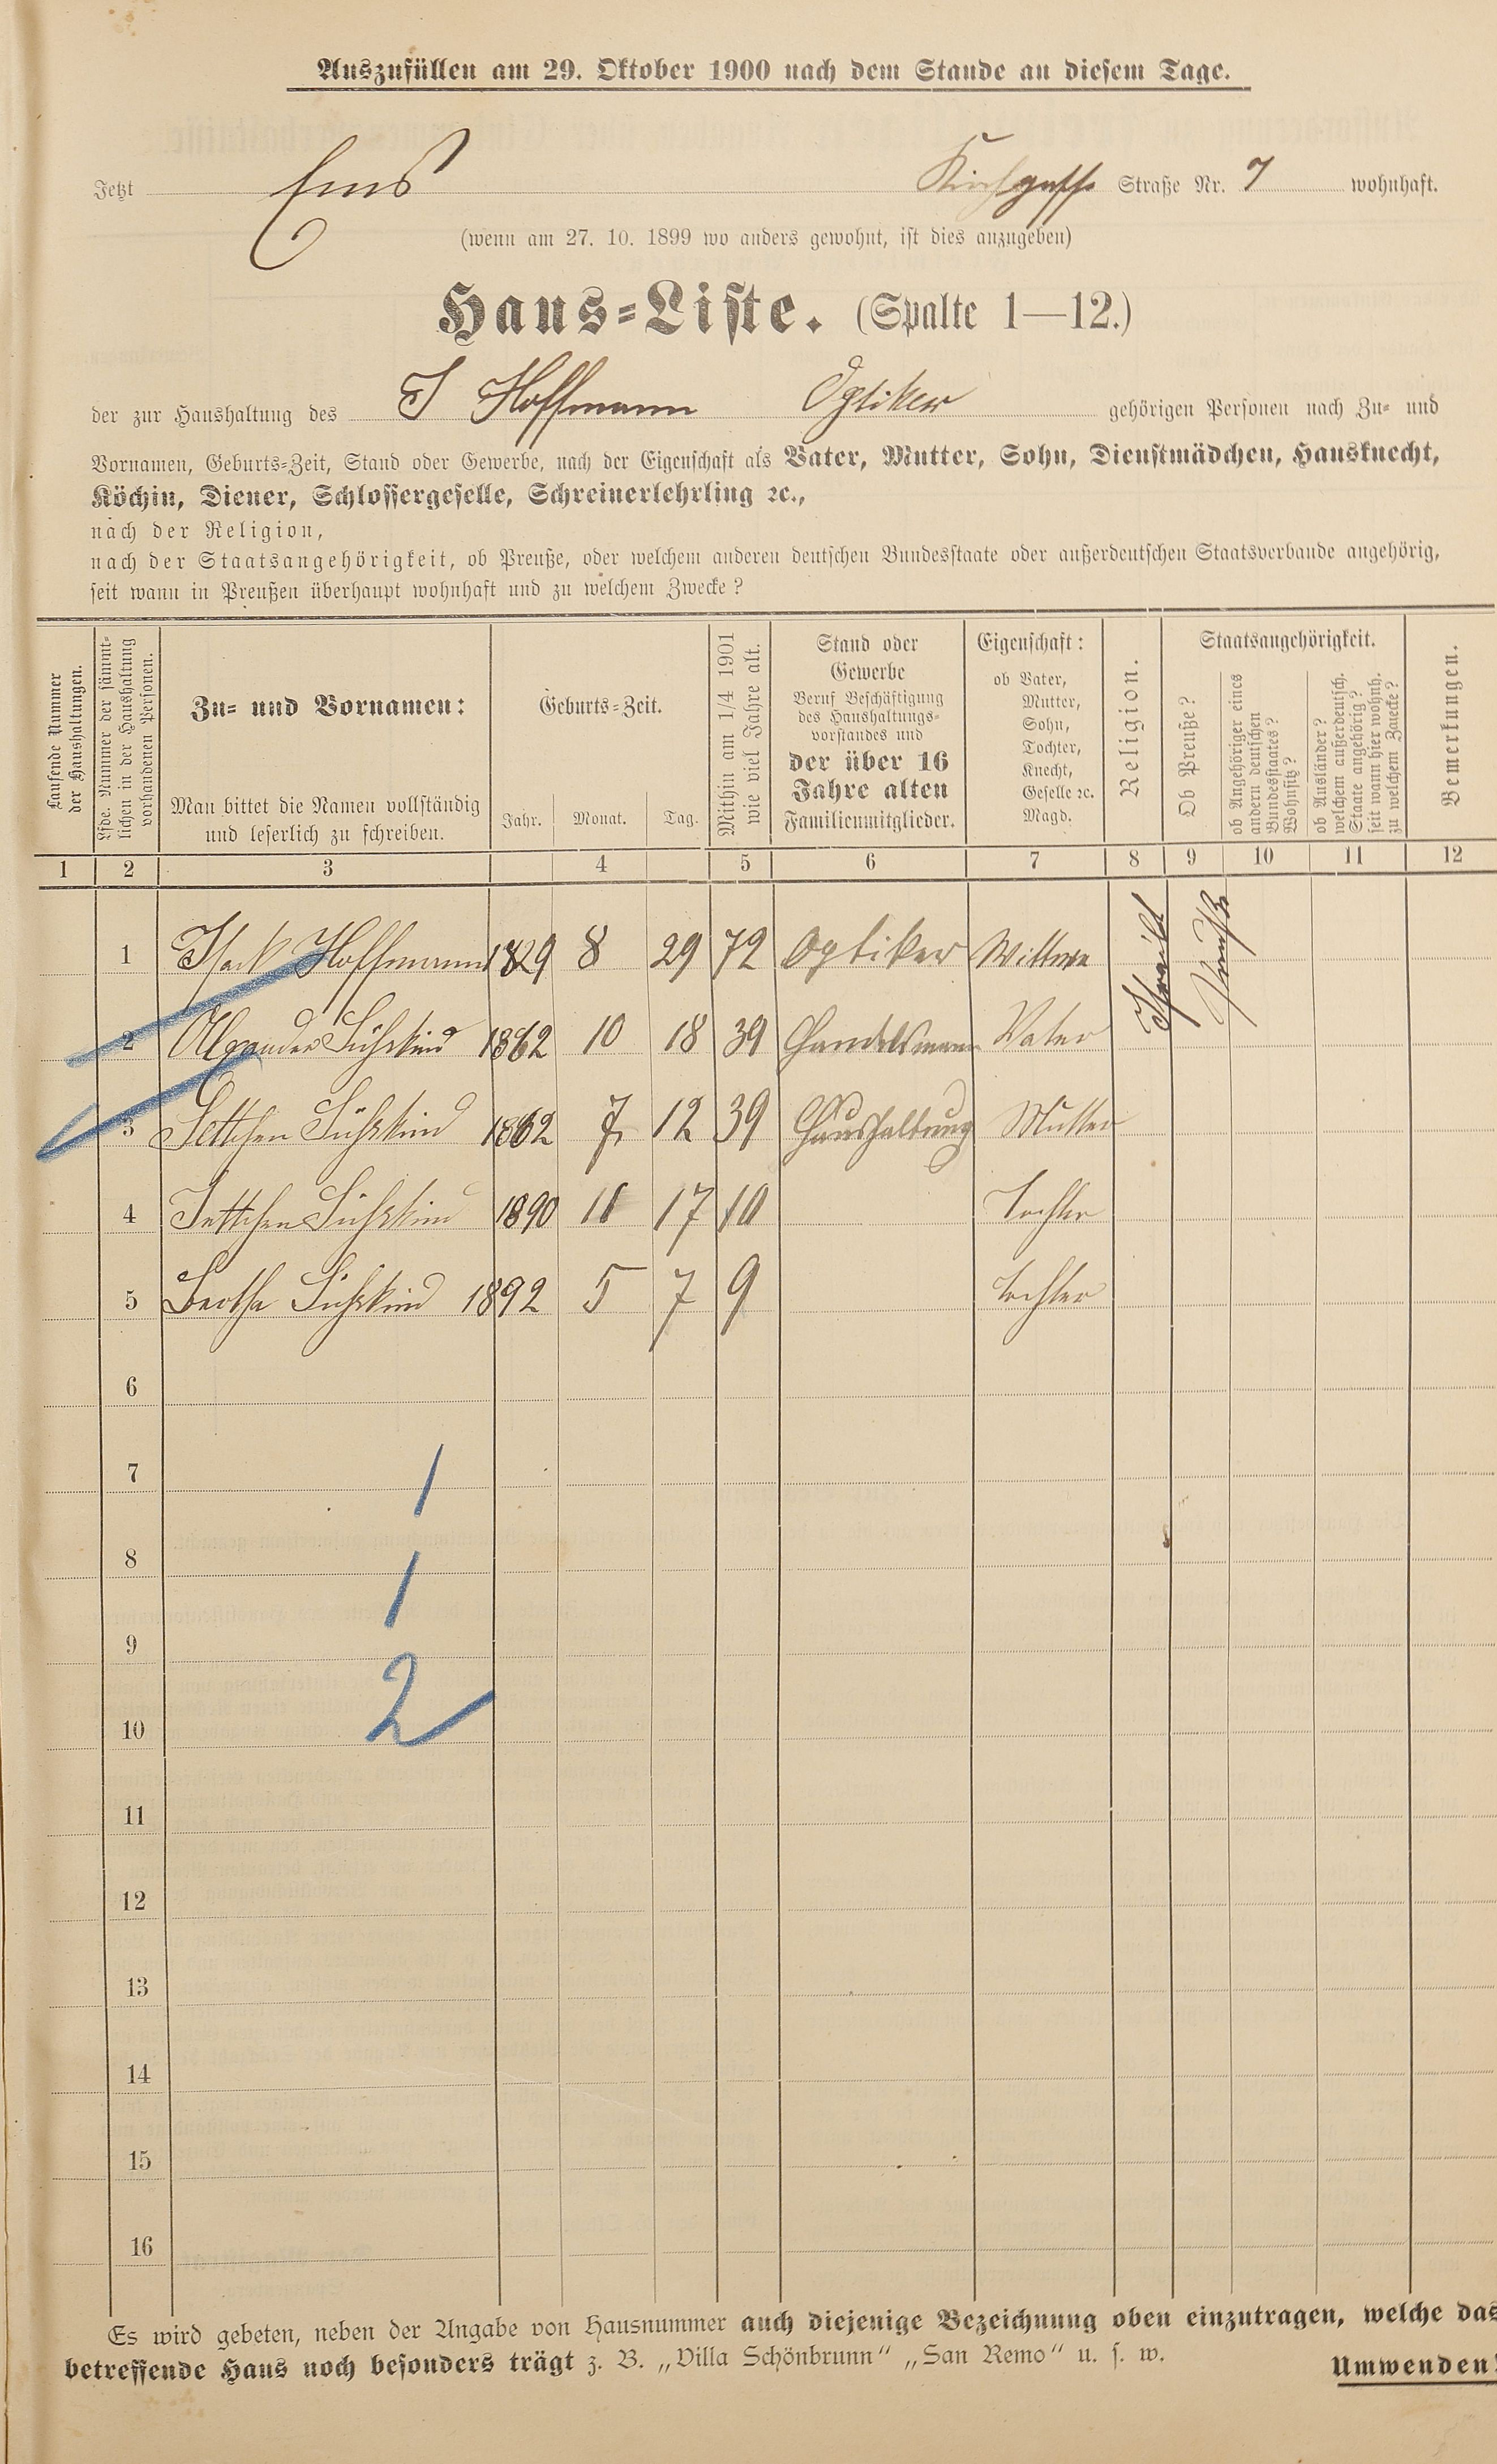 Auszufüllen am 29. Oktober 1900 nach dem Stande an diesem Tage.
Jetzt Ems Kirchgasse Straße Nr. 7 wohnhaft.
(wenn am 27. 10. 1899 wo anders gewohnt, ist dies anzugeben)
Haus-Liste. (Spalte 1—12.)
der zur Haushaltung des J Hoffmann Optiker gehörigen Personen nach Zu- und
Vornamen, Geburts-Zeit, Stand oder Gewerbe, nach der Eigenschaft als Vater, Mutter, Sohn, Dienstmädchen, Hausknecht,
Köchin, Diener, Schlossergeselle, Schreinerlehrling ꝛc.,
nach der Religion,
nach der Staatsangehörigkeit, ob Preuße, oder welchem anderen deutschen Bundesstaate oder außerdeutschen Staatsverbande angehörig,
seit wann in Preußen überhaupt wohnhaft und zu welchem Zwecke?
Laufende Nummer
der Haushaltungen.
Lfde. Nummer der sämmt-
lichen in der Haushaltung
vorhandenen Personen.
Zu- und Vornamen:
Man bittet die Namen vollständig
und leserlich zu schreiben.
Geburts-Zeit.
Jahr. Monat. Tag.
Mithin am 1/4 1901
wie viel Jahre alt.
Stand oder
Gewerbe
Beruf Beschäftigung
des Haushaltungs-
vorstandes und
der über 16
Jahre alten
Familienmitglieder.
Eigenschaft:
ob Vater,
Mutter,
Sohn,
Tochter,
Knecht,
Geselle ꝛc.
Magd.
Religion.
Staatsangehörigkeit.
Ob Preuße?
ob Angehöriger eines
andern deutschen
Bundesstaates?
Wohnsitz?
ob Ausländer?
welchem außerdeutsch.
Staate angehörig?
seit wann hier wohnh.
zu welchem Zwecke?
Bemerkungen.
1 2 3 4 5 6 7 8 9 10 11 12
1 Isack Hoffmann 1829 8 29 72 Optiker Wittwer Israelit Preuße
2 Alexander Süßkind 1862 10 18 39 Handelsmann Vater
3 Settchen Süßkind 1862 7 12 39 Haushaltung Mutter
4 Jettchen Süßkind 1890 11 17 10 Tochter
5 Bertha Süßkind 1892 5 7 9 Tochter
6
7 1
8 1
9
10 2
11
12
13
14
15
16
Es wird gebeten, neben der Angabe von Hausnummer auch diejenige Bezeichnung oben einzutragen, welche das
betreffende Haus noch besonders trägt z. B. „Villa Schönbrunn“ „San Remo“ u. s. w.
Umwenden!